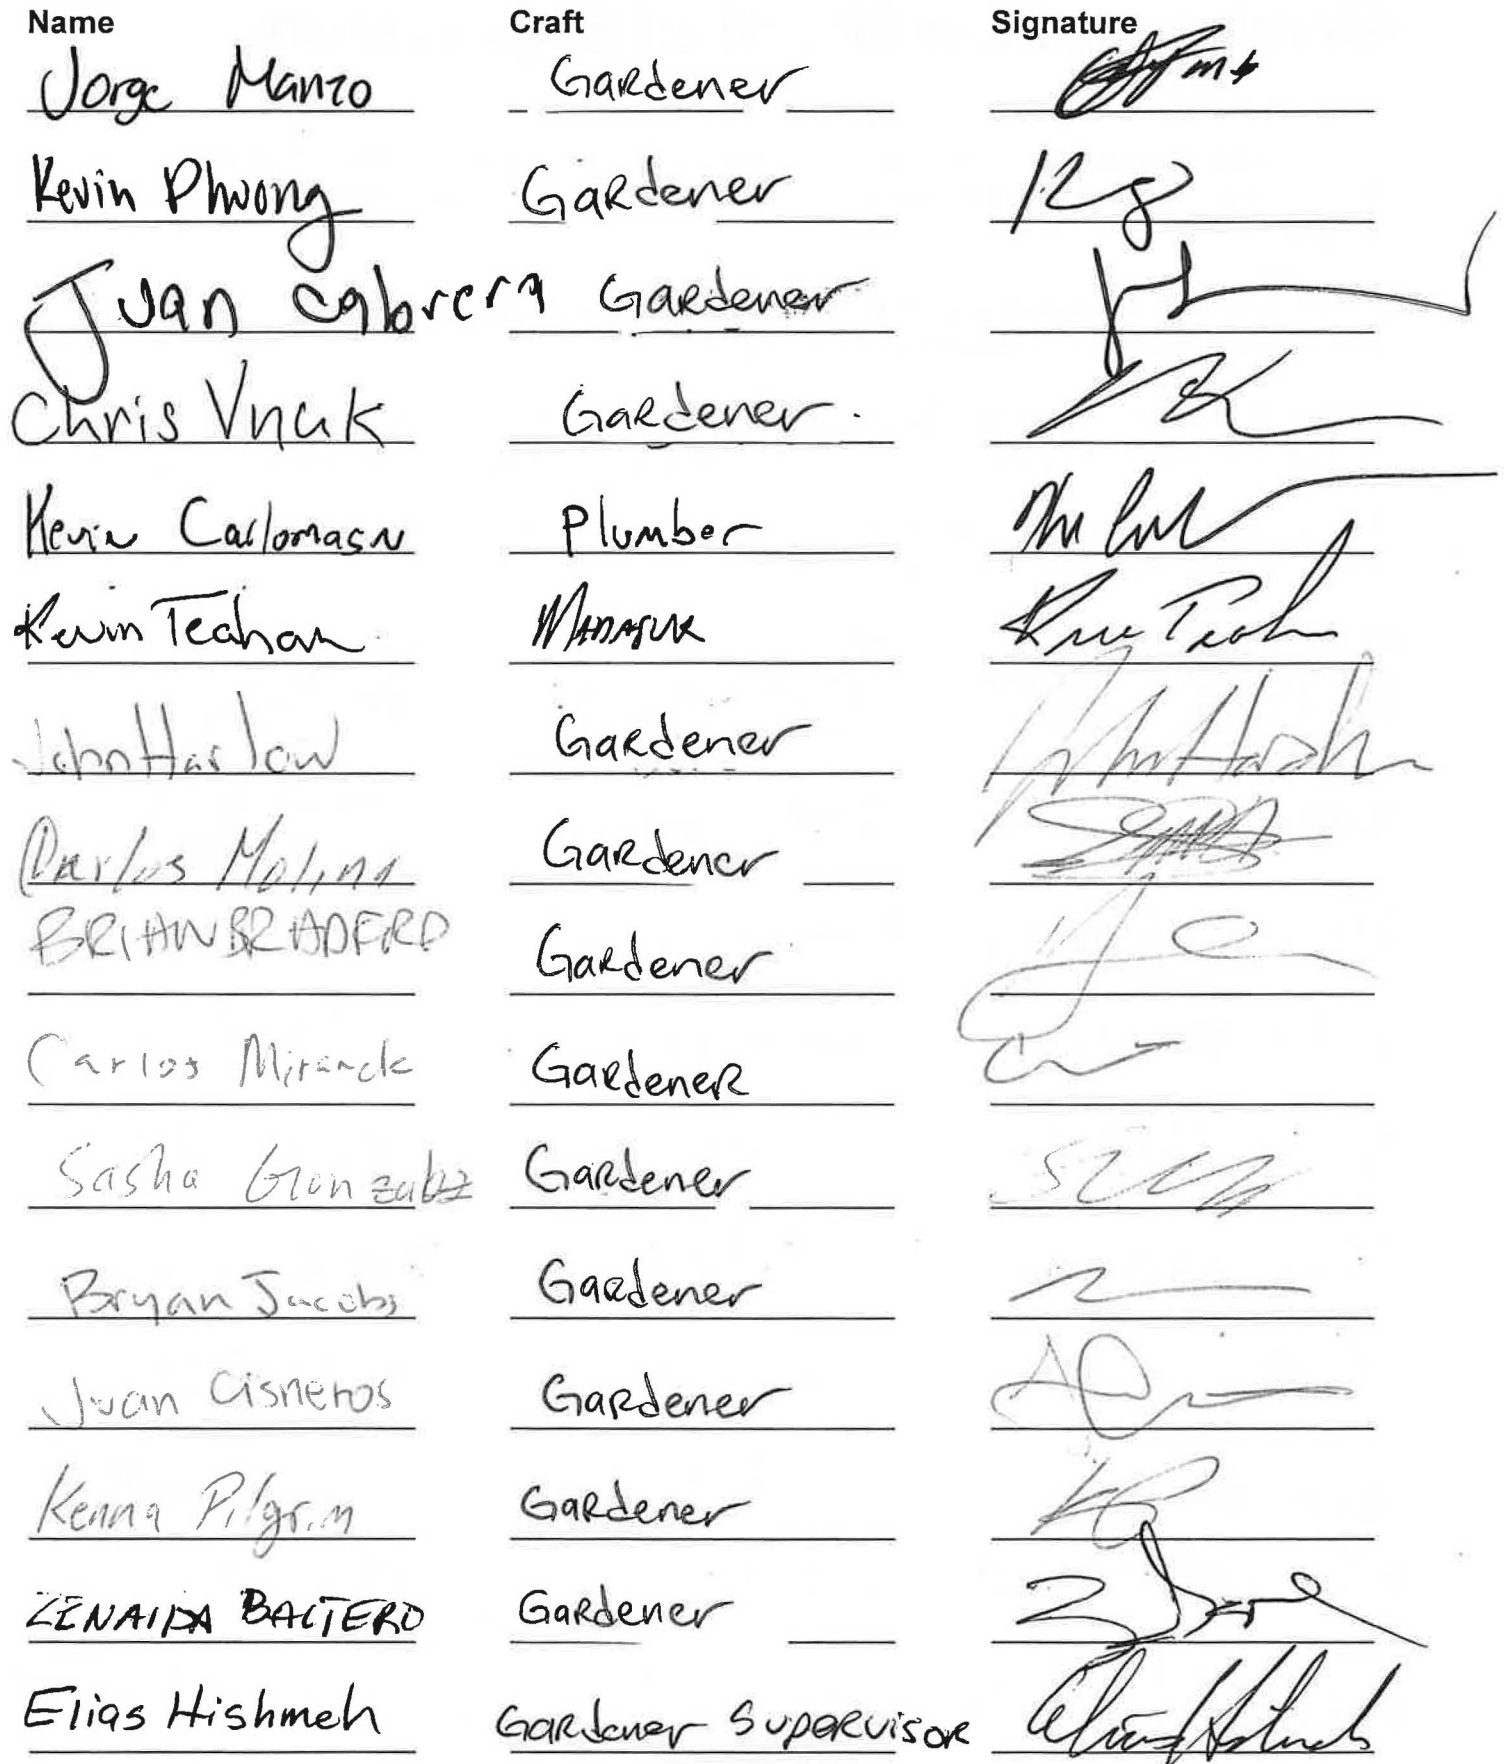 Name Craft Signature
Jorge Manzo Gardener
Kevin Phuong Gardener
Juan Cabrera Gardener
Chris Vnuk Gardener
Kevin Plumber
Kevin Teahan Kevin Teahan
John Harlow Gardener John Harlow
Carlos Molina Gardener
BRIAN BRADFORD Gardener
Carlos Miranda Gardener
Sasha Gonzalez Gardener
Bryan Jacobs Gardener
Juan Cisneros Gardener
Kenna Pilgrim Gardener
ZENAIDA Gardener
Elias Hishmeh Gardener Supervisor Elias Hishmeh